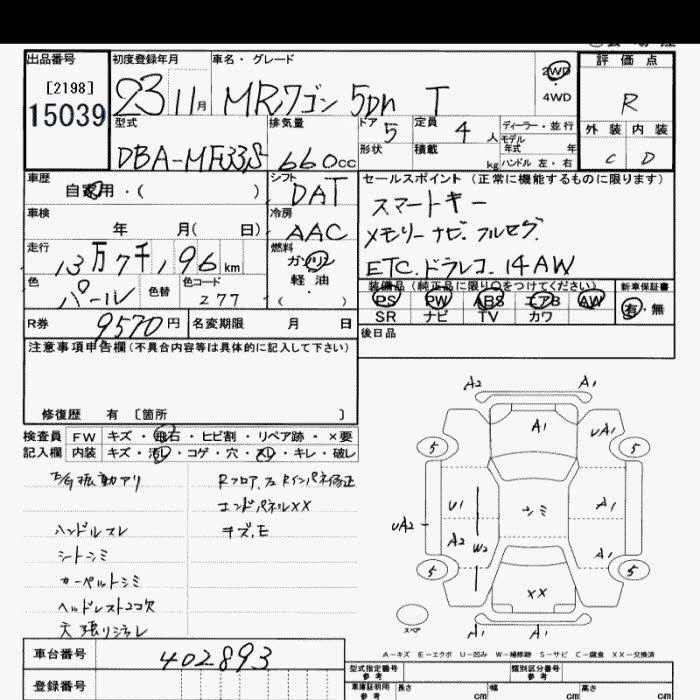 出品番号 初度登録年月 車名・グレード 2WD 評価点
[2198] 23 11月 MRワゴン 5Dn T ・4WD R
15039
型式 排気量 ドア 5 定員 4人 ディーラー・並行 外装 内装
DBA-MF33S 660cc 形状 積載 kg モデル年式 年 ハンドル 左・右 C D
車歴 自家用・( ) シフト DAT セールスポイント (正常に機能するものに限ります)
車検 年 月( 日) 冷房 AAC スマートキー
メモリーナビ.フルセグ.
走行 13万7千196km 燃料 ガソリン 軽油 ( ) ETC.ドラレコ.14AW
色 パール 色替 色コード Z77 装備品 (純正品に限り○をつけてください) 新車保証書
PS PW ABS エアB AW 有・無
R券 9570円 名変期限 月 日 SR ナビ TV カワ
注意事項申告欄(不具合内容等は具体的に記入して下さい) 後日品
修復歴 有 [箇所 ]
検査員 FW キズ・飛石・ヒビ割・リペア跡・×要
記入欄 内装 キズ・汚レ・コゲ・穴・スレ・キレ・破レ
Rフロア.
エンドパネルXX
キズ.E
ハンドルスレ
シートシミ
カーペットシミ
ヘッドレスト2コ欠
A2 A1
A1 uA1
5 5
U1 シミ A1
uA2 A2 W2 A1
5 5
XX
スペア A1 A1
A-キズ E-エクボ U-凹み W-補修跡 S-サビ C-腐食 XX-交換済
車台番号 402893
型式指定番号 参考 類別区分番号 参考
登録番号 車庫証明用 参考 長さ cm 幅 cm 高さ cm